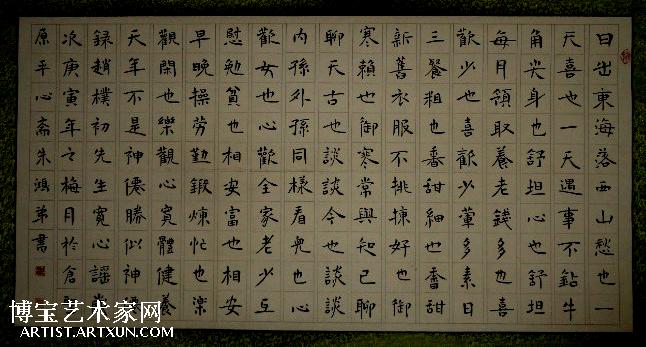 日出東海落西山愁也一
天喜也一天遇事不鉆牛
角尖身也舒坦心也舒坦
每月領取養老錢多也喜
歡少也喜歡少葷多素日
三餐粗也香甜細也香甜
新舊衣服不挑揀好也御
寒賴也御寒常與知己聊
聊天古也談談今也談談
内孫外孫同樣看兒也心
歡女也心歡全家老少互
慰勉貧也相安富也相安
早晚操勞勤鍛煉忙也樂
觀閑也樂觀心寬體健養
天年不是神僊勝似神
録趙樸初先生寬心謡
次庚寅年之梅月於倉
原平心斋朱鴻弟書
博宝艺术家网
ARTIST.ARTXUN.COM